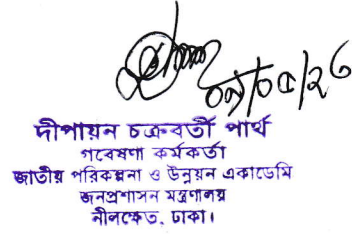 ০৭/০৫/২৬
দীপায়ন চক্রবর্তী পার্থ
গবেষণা কর্মকর্তা
জাতীয় পরিকল্পনা ও উন্নয়ন একাডেমি
জনপ্রশাসন মন্ত্রণালয়
নীলক্ষেত, ঢাকা।